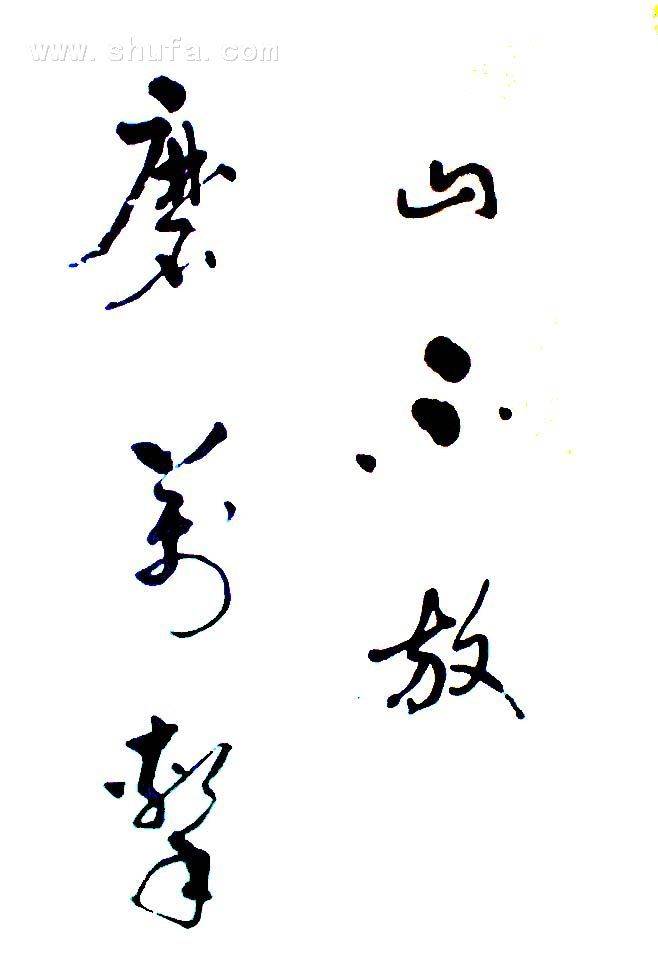 www.shufa.com
山不放
磨萬擊